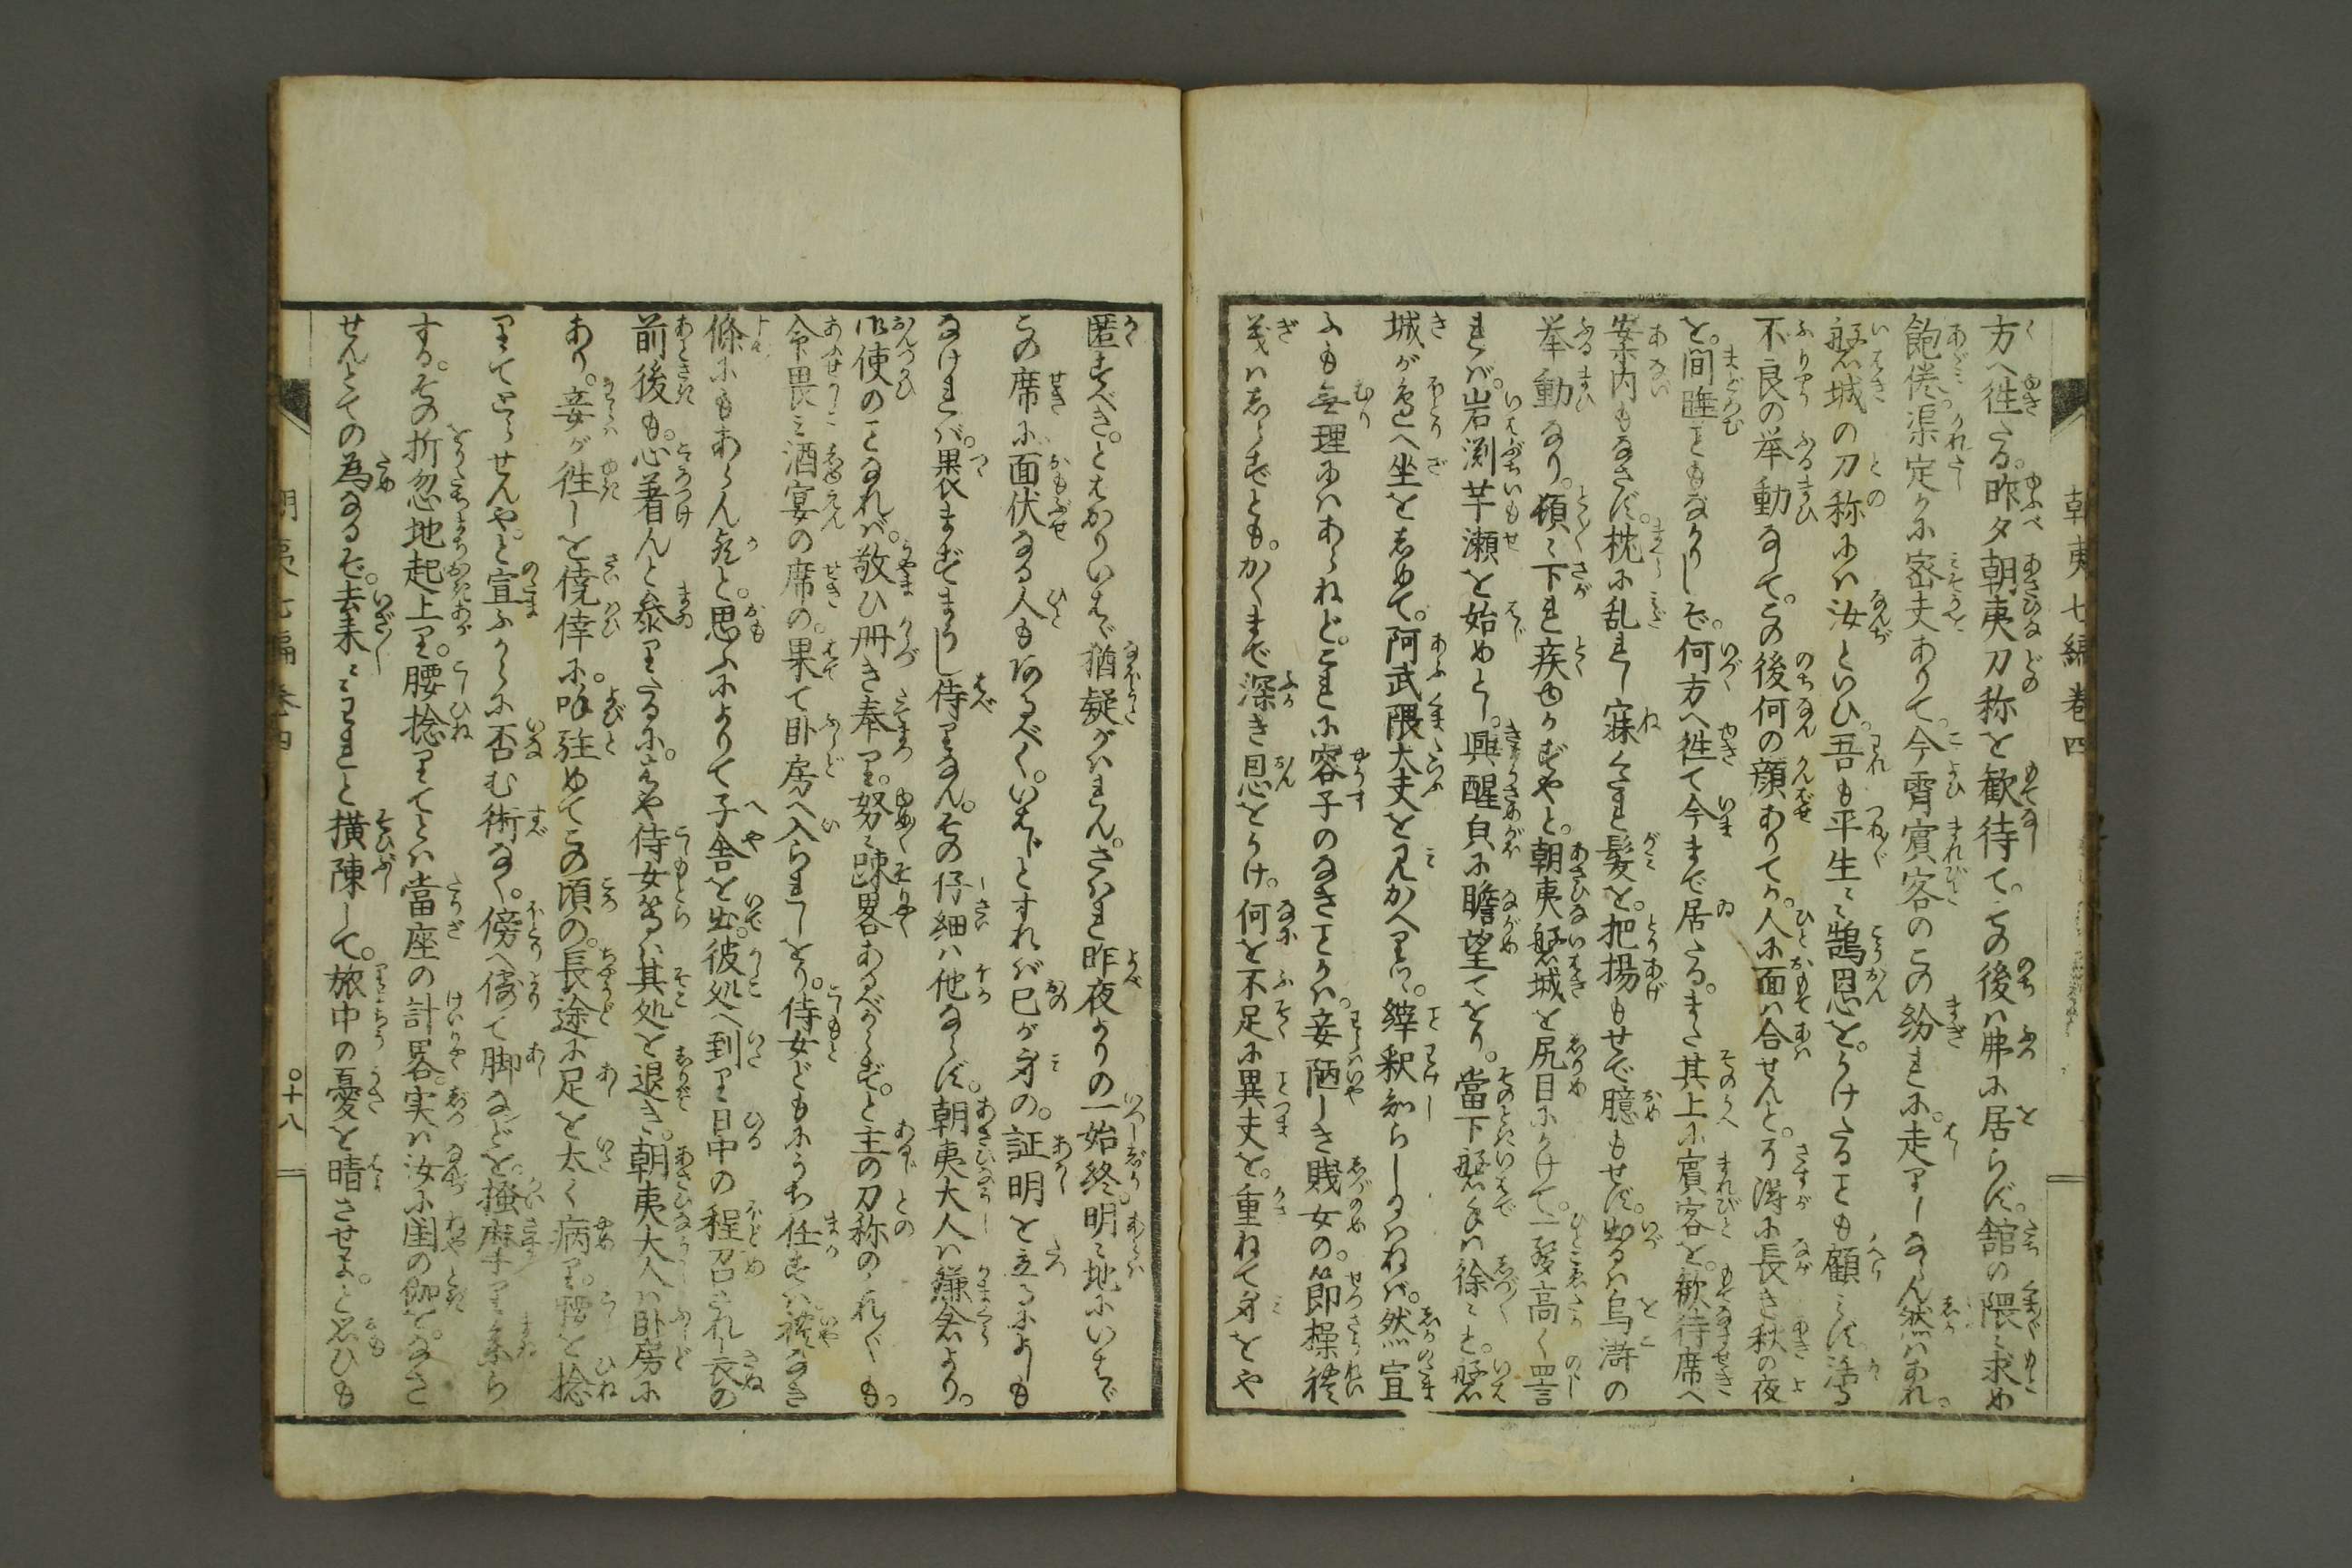 朝夷七編巻四
方へ徃たる。昨夕朝夷刀称を歓待て。その後は弗に居らず。舘の隈〻求め
飽倦渠定かに密夫ありて。今霄賓客のこの紛れに。走りしならん然はあれ。
磐城の刀称には汝といひ。吾も平生〻鵠恩を。うけたることも顧みず
不良の挙動なして。この後何の顔ありてか。人に面は合せんと。に長き秋の夜
を。間睡ともなかりしぞ。何方へ徃て今まで居たる。また其上に賓客を。歓待席へ
案内もなさず。枕に乱れし寐くたれ髪を。把揚もせで臆もせず。出るは烏滸の
挙動なり。頓〻下れ疾ゆかずやと。朝夷磐城を尻目にかけて。一聲高く罵
れば。岩渕芋瀬を始めとし。興醒皃に瞻望てをり。當下磐手は徐〻と。磐
城が邉へ坐をしめて。阿武隈大夫を見かへりて。縡釈知らしねば。然宣
ふも無理にはあらねど。これに容子のなきことかは。妾陋しき賎女の。節操禮
義はしらずとも。かくまで深き恩をうけ。何を不足に異夫を。重ねて身をや
匿すべき。とばかりいはゞ猶疑がはれん。さはれ昨夜よりの一始終。明〻地にいはで
この席に面伏なる人もあるべく。いはじとすれば已が身の。証明を立るによしも
なければ。果さずまうし侍りなん。その仔細は他ならず。朝夷大人は鎌倉より。
御使のことなれば。敬ひ冊き奉り。努〻踈畧あるべからず。と主の刀称のかれぐも。
令畏み酒宴の席の。果て卧房へ入られしをり。侍女どもにうち任すは禮なき
條にもあらん歟と。思ふによりて子舎を出。彼処へ到り日中の程召され衣の
前後も。心着んと参りたるに。はや侍女等は其処を退き。朝夷大人は卧房に
あり。妾が徃しを僥倖に。呼駐めてこの頃の。長途に足を太く病り。腰を捻
りてとらせんや。と宣ふからに否む術なく。傍へ倚て脚などを。掻麻まゐら
する。その折忽地起上り。腰捻りてとは當座の計畧。実は汝に閨の伽を。なさ
せんとての為なるぞ。去来〻われと横陳して。旅中の憂を晴させよ。と思ひも
朝夷七編巻四
十八